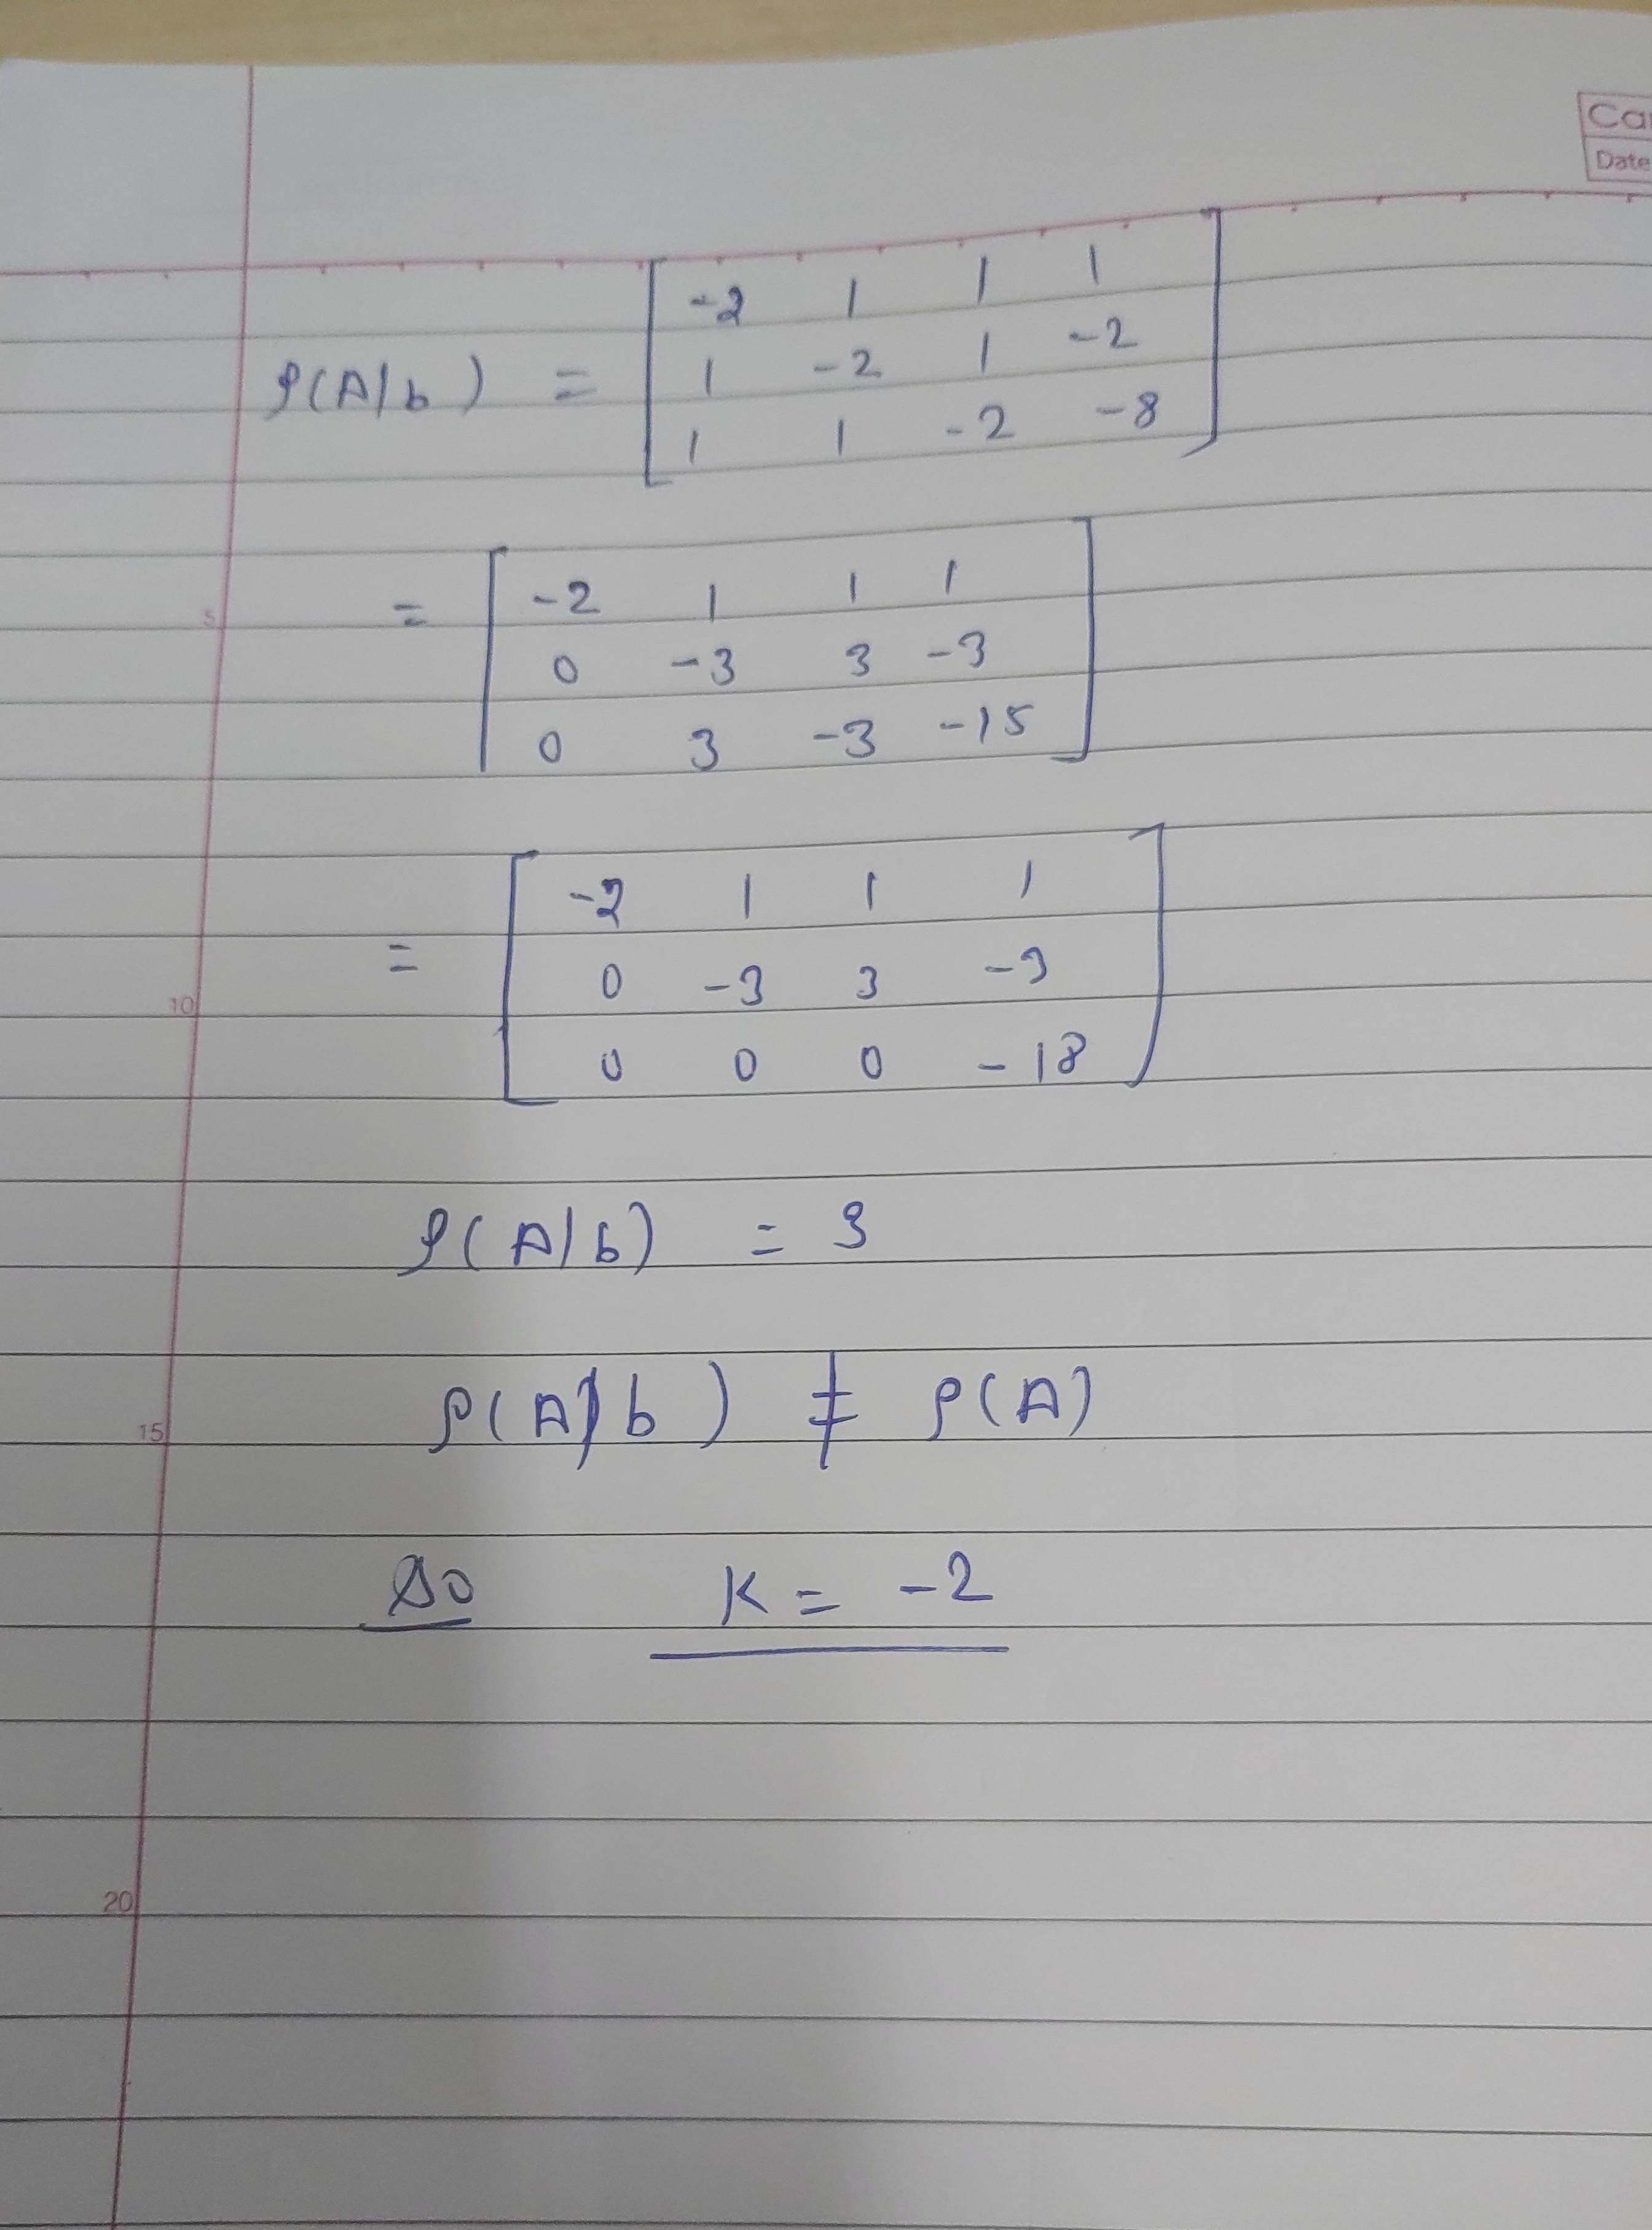 Ca
Date
ρ(A|b) = [ -2 1 1 1
1 -2 1 -2
1 1 -2 -8 ]
= [ -2 1 1 1
0 -3 3 -3
0 3 -3 -15 ]
5
= [ -2 1 1 1
0 -3 3 -3
0 0 0 -18 ]
10
ρ(A|b) = 3
ρ(A|b) ≠ ρ(A)
15
So K = -2
20